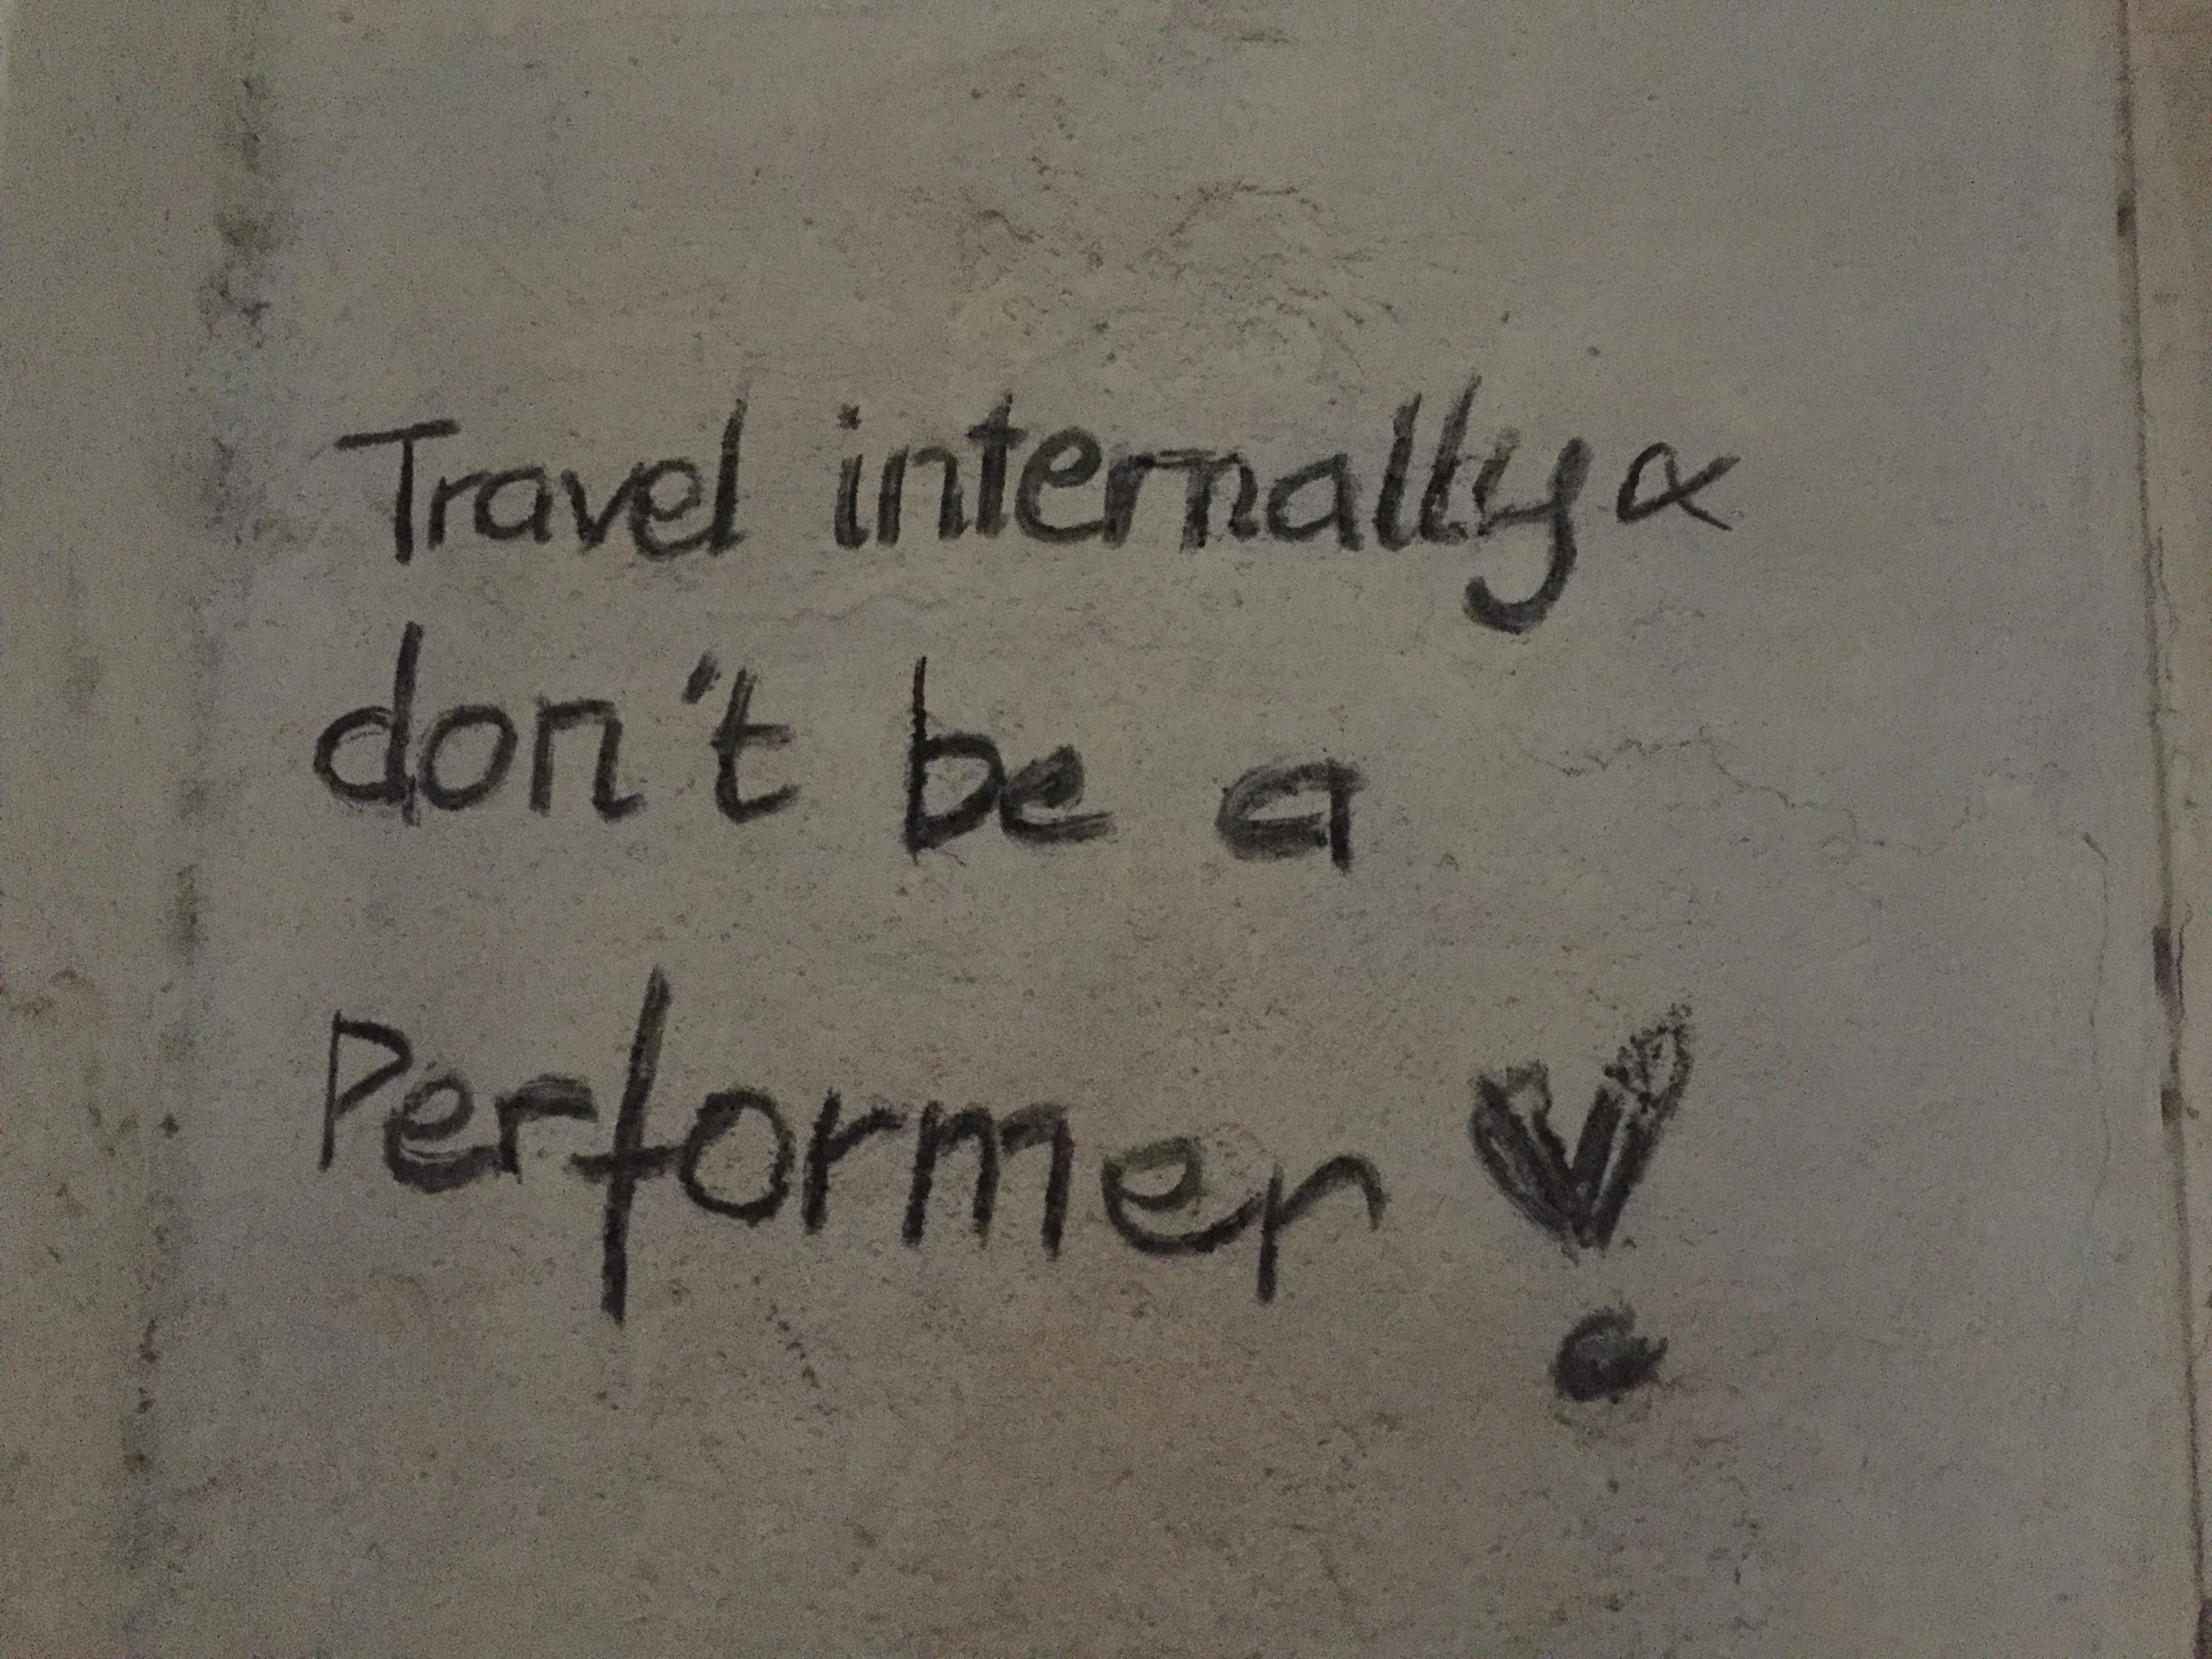 Travel internally &
don't be a
Performer !